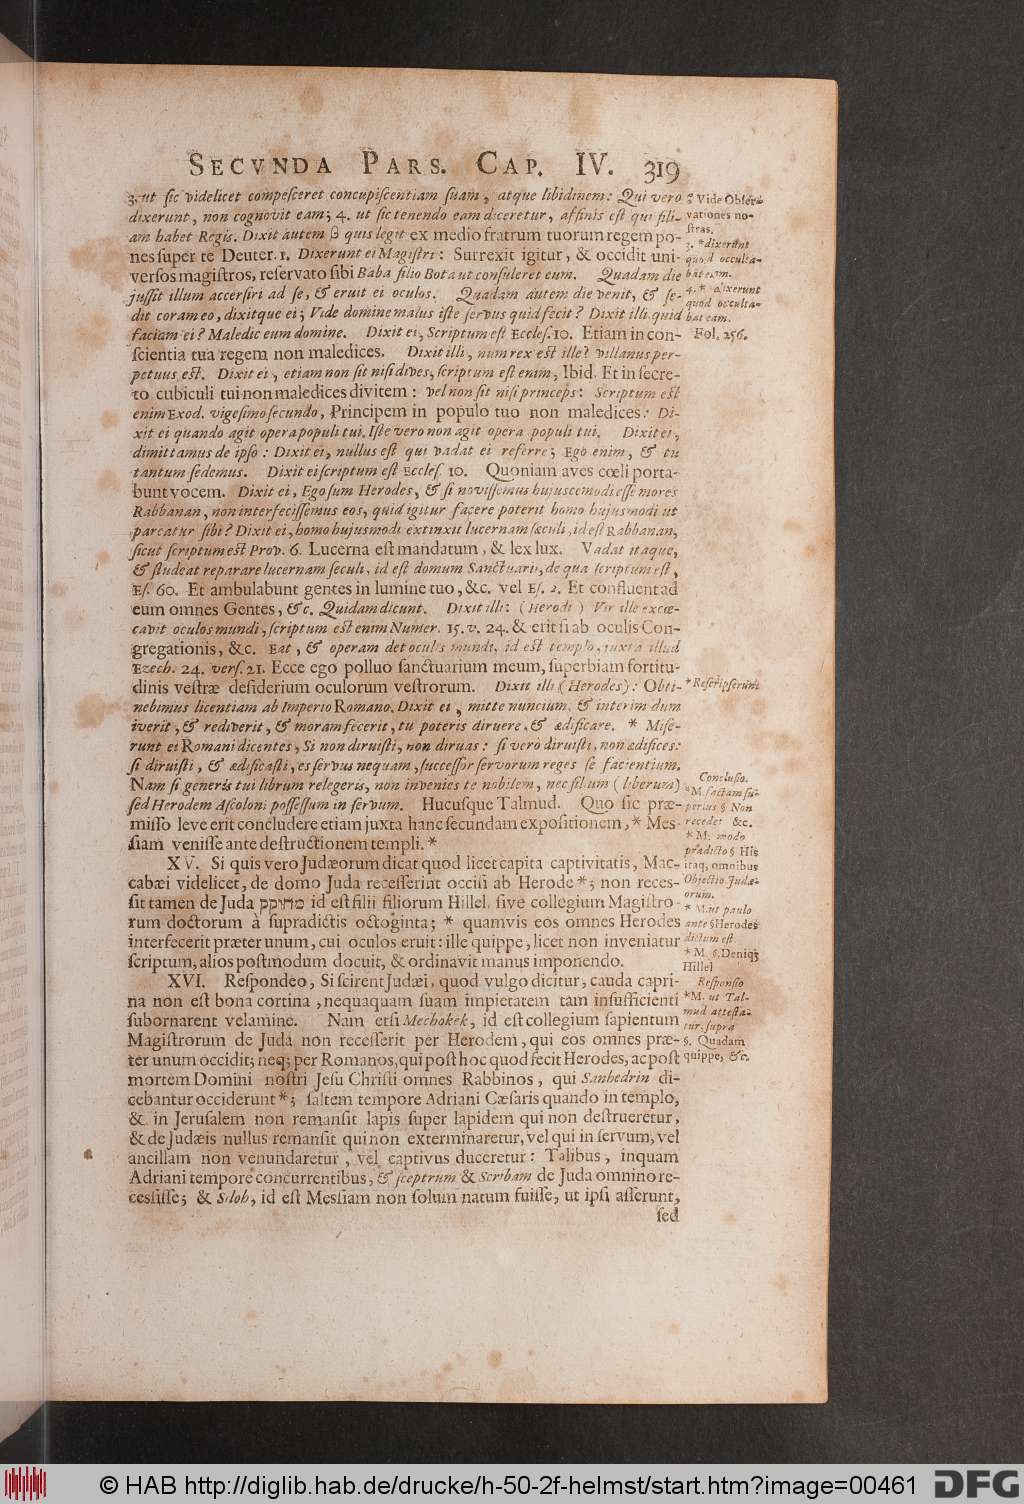 SECVNDA PARS. CAP. IV. 319
3. ut ſic videlicet compeſceret concupiſcentiam ſuam, atque libidinem: Qui vero
dixerunt, non cognovit eam; 4. ut ſic tenendo eam diceretur, affinis eſt qui fili-
am habet Regis. Dixit autem ß quis legit ex medio fratrum tuorum regem po-
nes ſuper te Deuter. 1. Dixerunt ei Magiſtri: Surrexit igitur, & occidit uni-
verſos magiſtros, reſervato ſibi Baba filio Bota ut conſuleret eum. Quadam die
juſſit illum accerſiri ad ſe, & eruit ei oculos. Quadam autem die venit, & ſe-
dit coram eo, dixitque ei; Vide domine malus iſte ſervus quid fecit? Dixit illi, quid
faciam ei? Maledic eum domine. Dixit ei, Scriptum eſt Eccleſ. 10. Etiam in con-
ſcientia tua regem non maledices. Dixit illi, num rex eſt ille? villanus per-
petuus eſt. Dixit ei, etiam non ſit niſi dives, ſcriptum eſt enim, Ibid. Et in ſecre-
to cubiculi tui non maledices divitem: vel non ſit niſi princeps: Scriptum eſt
enim Exod. vigeſimo ſecundo, Principem in populo tuo non maledices: Di-
xit ei quando agit opera populi tui. Iſte vero non agit opera populi tui. Dixit ei,
dimittamus de ipſo: Dixit ei, nullus eſt qui vadat ei referre; Ego enim, & tu
tantum ſedemus. Dixit ei ſcriptum eſt Eccleſ. 10. Quoniam aves cœli porta-
bunt vocem. Dixit ei, Ego ſum Herodes, & ſi noviſſemus hujuscemodi eſſe mores
Rabbanan, non interfeciſſemus eos, quid igitur facere poterit homo hujusmodi ut
parcatur ſibi? Dixit ei, homo hujusmodi extinxit lucernam ſæculi, id eſt Rabbanan,
ſicut ſcriptum eſt Prov. 6. Lucerna eſt mandatum, & lex lux. Vadat itaque,
& ſtudeat reparare lucernam ſeculi, id eſt domum Sanctuarii, de qua ſcriptum eſt,
Eſ. 60. Et ambulabunt gentes in lumine tuo, &c. vel Eſ. 2. Et confluent ad
eum omnes Gentes, &c. Quidam dicunt. Dixit illi: (Herodi) Vir ille excæ-
cavit oculos mundi, ſcriptum eſt enim Numer. 15. v. 24. & erit ſi ab oculis Con-
gregationis, &c. Eat, & operam det oculis mundi, id eſt templo, juxta illud
Ezech. 24. verſ. 21. Ecce ego polluo ſanctuarium meum, ſuperbiam fortitu-
dinis veſtræ deſiderium oculorum veſtrorum. Dixit illi (Herodes): Obti-
nebimus licentiam ab Imperio Romano. Dixit ei, mitte nuncium, & interim dum
iverit, & rediverit, & moram fecerit, tu poteris diruere, & ædificare. * Miſe-
runt ei Romani dicentes, Si non diruiſti, non diruas: ſi verò diruiſti, non ædifices:
ſi diruiſti, & ædificaſti, es ſervus nequam, ſucceſſor ſervorum reges ſe facientium.
Nam ſi generis tui librum relegeris, non invenies te nobilem, nec filium (liberum)
ſed Herodem Aſcoloni poſſeſſum in ſervum. Hucuſque Talmud. Quo ſic præ-
miſſo leve erit concludere etiam juxta hanc ſecundam expoſitionem, * Mes-
ſiam veniſſe ante deſtructionem templi. *
XV. Si quis vero Judæorum dicat quod licet capita captivitatis, Mac-
cabæi videlicet, de domo Juda receſſerint occiſi ab Herode *; non receſ-
ſit tamen de Juda מחוקק id eſt filii filiorum Hillel, ſive collegium Magiſtro-
rum doctorum à ſupradictis octoginta; * quamvis eos omnes Herodes
interfecerit præter unum, cui oculos eruit: ille quippe, licet non inveniatur
ſcriptum, alios poſtmodum docuit, & ordinavit manus imponendo.
XVI. Reſpondeo, Si ſcirent Judæi, quod vulgo dicitur, cauda capri-
na non eſt bona cortina, nequaquam ſuam impietatem tam inſufficienti
ſubornarent velamine. Nam etſi Mechokek, id eſt collegium ſapientum
Magiſtrorum de Juda non receſſerit per Herodem, qui eos omnes præ-
ter unum occidit; neq; per Romanos, qui poſt hoc quod fecit Herodes, ac poſt
mortem Domini noſtri Jeſu Chriſti omnes Rabbinos, qui Sanhedrin di-
cebantur occiderunt *; ſaltem tempore Adriani Cæſaris quando in templo,
& in Jeruſalem non remanſit lapis ſuper lapidem qui non deſtrueretur,
& de Judæis nullus remanſit qui non exterminaretur, vel qui in ſervum, vel
ancillam non venundaretur, vel captivus duceretur: Talibus, inquam
Adriani tempore concurrentibus, & ſceptrum & Scribam de Juda omnino re-
ceſſiſſe; & Siloh, id eſt Meſſiam non ſolum natum fuiſſe, ut ipſi aſſerunt,
ſed
ß Vide Obſer-
vationes no-
ſtras.
3. * dixerunt
quod occulta-
bat eam.
4. * dixerunt
quod occulta-
bat eam.
Fol. 256.
* Reſcripſerunt
Concluſio.
* M. factam ſu-
perius § Non
recedet &c.
* M. modo
prædicto § His
itaq, omnibus
Objectio Judæ-
orum.
* M. ut paulo
ante § Herodes
dictum eſt
* M. §. Deniq;
Hillel
Reſponſio
* M. ut Tal-
mud atteſta-
tur, ſupra
§. Quadam
quippe, &c.
© HAB http://diglib.hab.de/drucke/h-50-2f-helmst/start.htm?image=00461
DFG